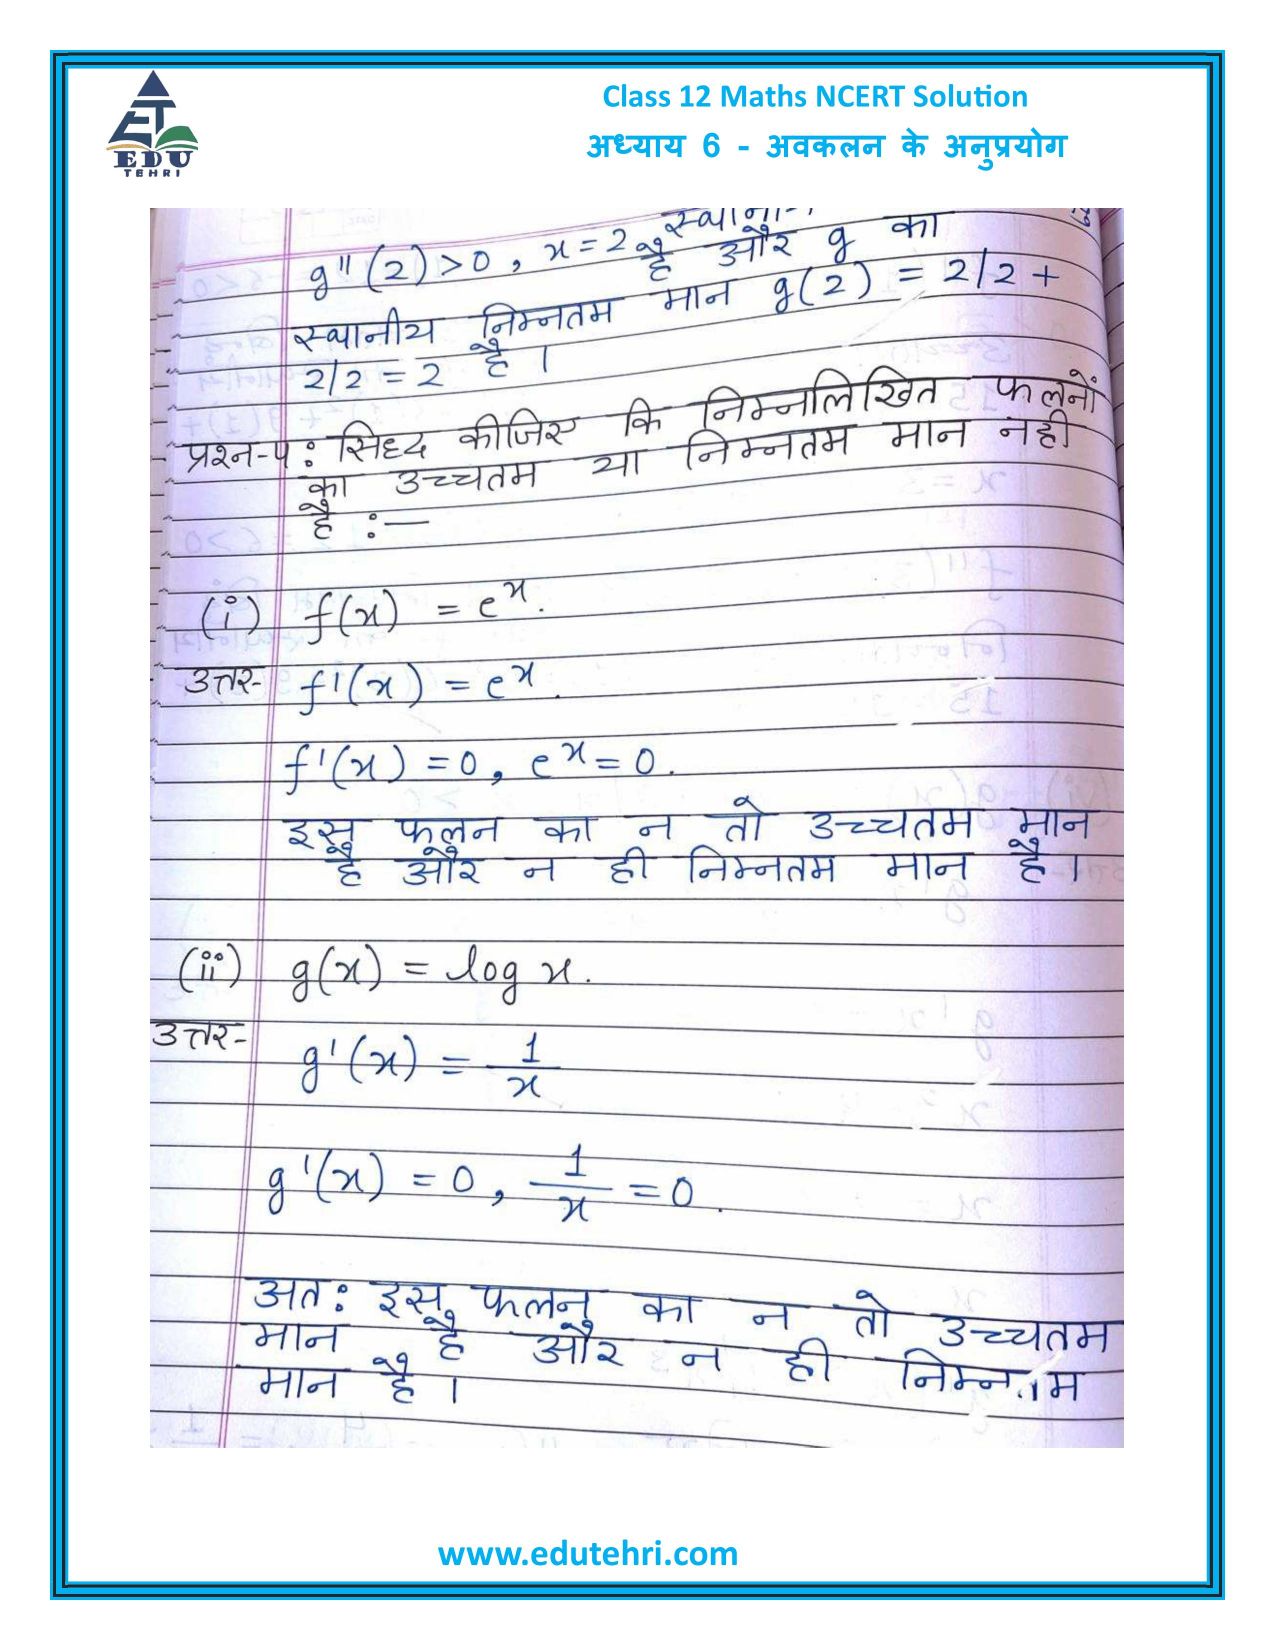 ET
EDU
TEHRI
Class 12 Maths NCERT Solution
अध्याय 6 - अवकलन के अनुप्रयोग
g''(2) > 0 , x = 2
है और g का
स्थानीय निम्नतम मान g(2) = 2/2 +
2/2 = 2 है ।
प्रश्न-५ : सिध्द कीजिए कि निम्नलिखित फलनों
का उच्चतम या निम्नतम मान नही
है :—
(i) f(x) = e^x.
उत्तर- f'(x) = e^x.
f'(x) = 0, e^x = 0.
इस फलन का न तो उच्चतम मान
है और न ही निम्नतम मान है ।
(ii) g(x) = log x.
उत्तर-
g'(x) = 1/x
g'(x) = 0, 1/x = 0.
अत: इस फलन का न तो उच्चतम
मान है और न ही निम्नतम
मान है ।
www.edutehri.com